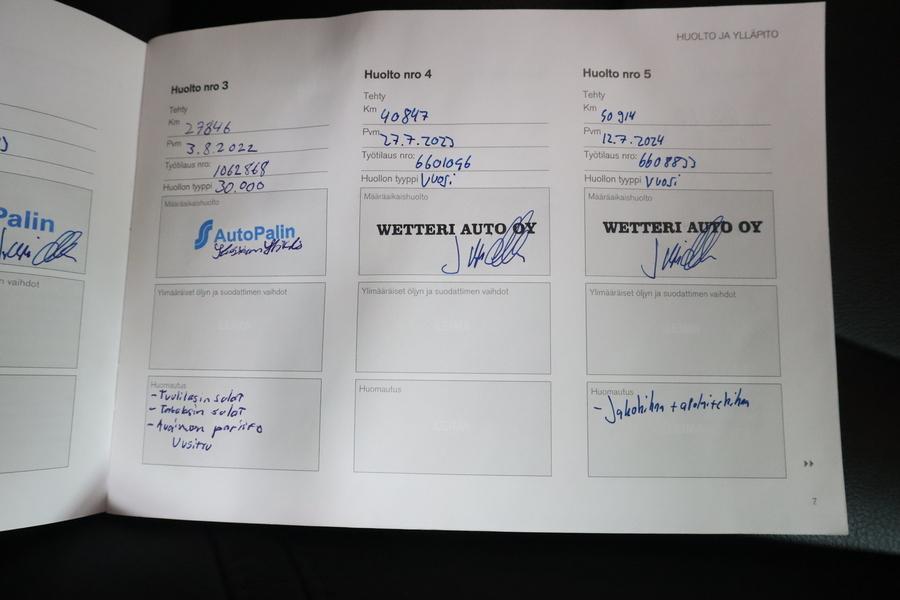 HUOLTO JA YLLÄPITO
Palin
n vaihdot
Huolto nro 3
Tehty
Km 27846
Pvm 3.8.2022
Työtilaus nro: 1062868
Huollon tyyppi 30.000
Määräaikaishuolto
AutoPalin
Huomautus
- Tuulilasin sulat
- Takalasin sulat
- Avaimen paristo
Uusittu
Huolto nro 4
Tehty
Km 40847
Pvm 27.7.2023
Työtilaus nro: 6601096
Huollon tyyppi Vuosi
Määräaikaishuolto
WETTERI AUTO OY
Ylimääräiset öljyn ja suodattimen vaihdot
LEIMA
Huomautus
LEIMA
Huolto nro 5
Tehty
Km 50914
Pvm 12.7.2024
Työtilaus nro: 6608833
Huollon tyyppi Vuosi
Määräaikaishuolto
WETTERI AUTO OY
Ylimääräiset öljyn ja suodattimen vaihdot
LEIMA
Huomautus
- Jakohihna + apulaitehihna
LEIMA
Ylimääräiset öljyn ja suodattimen vaihdot
LEIMA
7